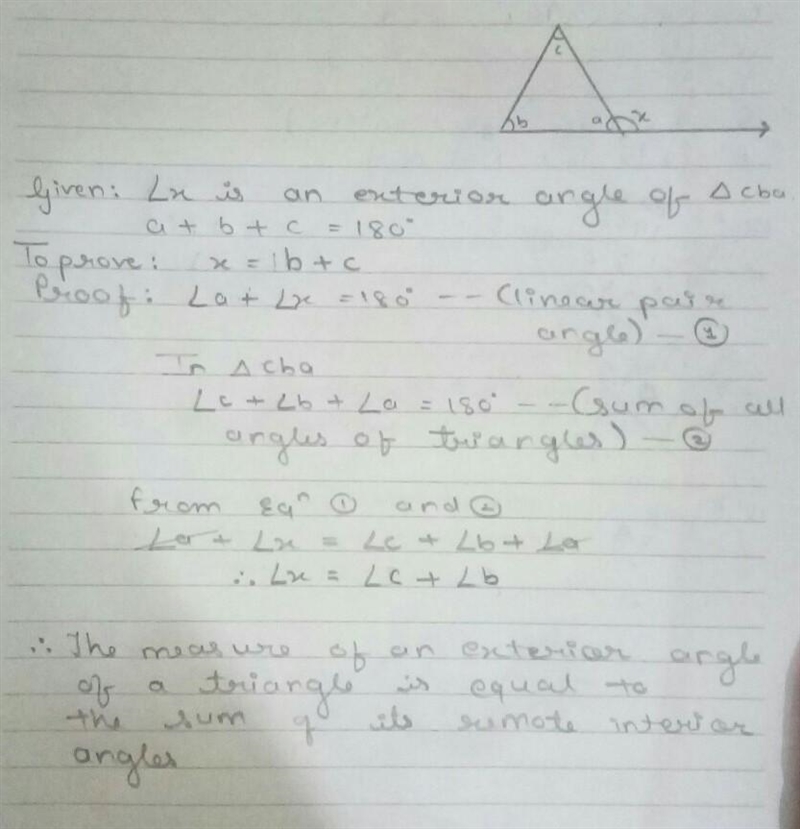 c
b a x
Given: ∠x is an exterior angle of △cba
a + b + c = 180°
To prove: x = b + c
Proof: ∠a + ∠x = 180° -- (linear pair
angle) — ①
In △cba
∠c + ∠b + ∠a = 180° -- (sum of all
angles of triangles) — ②
from Eqⁿ ① and ②
∠a + ∠x = ∠c + ∠b + ∠a
∴ ∠x = ∠c + ∠b
∴ The measure of an exterior angle
of a triangle is equal to
the sum of its remote interior
angles